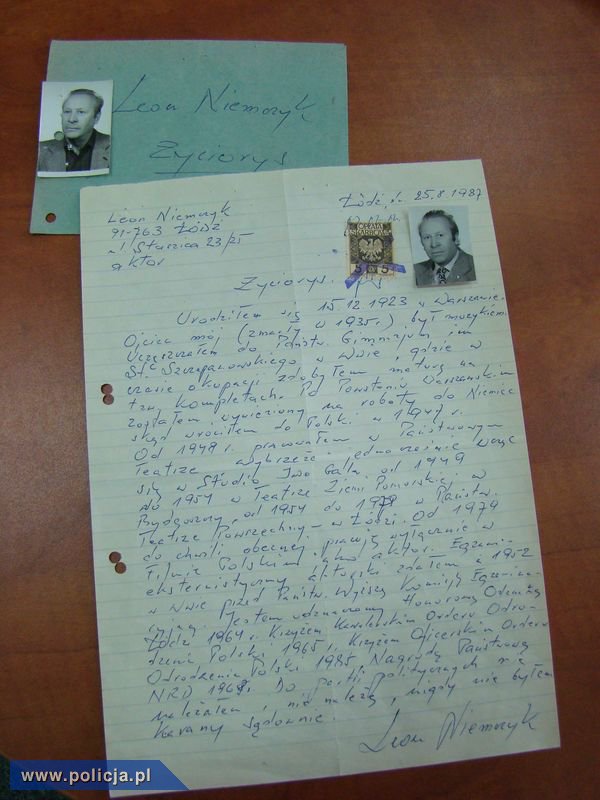 Leon Niemczyk
Życiorys
Leon Niemczyk
91-763 Łódź
ul. Staszica 23/25
aktor
Łódź, dn. 25.8.1987
OPŁATA
SKARBOWA
5 5
Życiorys.
Urodziłem się 15.12.1923 w Warszawie.
Ojciec mój (zmarły w 1935r.) był muzykiem.
Uczęszczałem do Państw. Gimnazjum im
St. Szczepanowskiego w W-wie, gdzie w
czasie okupacji zdobyłem maturę na
tzw. kompletach. Po Powstaniu Warszawskim
zostałem wywieziony na roboty do Niemiec
skąd wróciłem do Polski w 1947 r.
Od 1948 r. pracowałem w Państwowym
Teatrze Wybrzeże jednocześnie ucząc
się w Studio Iwo Galla, od 1949
do 1954 w Teatrze Ziemi Pomorskiej w
Bydgoszczy, od 1954 do 1979 w Państw.
Teatrze Powszechnym w Łodzi. Od 1979
do chwili obecnej pracuję wyłącznie w
Filmie Polskim jako aktor. Egzamin
eksternistyczny aktorski zdałem w 1952
w W-wie przed Państw. Wyższą Komisją Egzamina-
cyjną. Jestem odznaczony Honorową Odznaką
Łodzi 1964 r. Krzyżem Kawalerskim Orderu Odro-
dzenia Polski 1965 r, Krzyżem Oficerskim Orderu
Odrodzenia Polski 1985, Nagrodą Państwową
NRD 1968. Do partii politycznych nie
należałem i nie należę, nigdy nie byłem
karany sądownie.
Leon Niemczyk
www.policja.pl